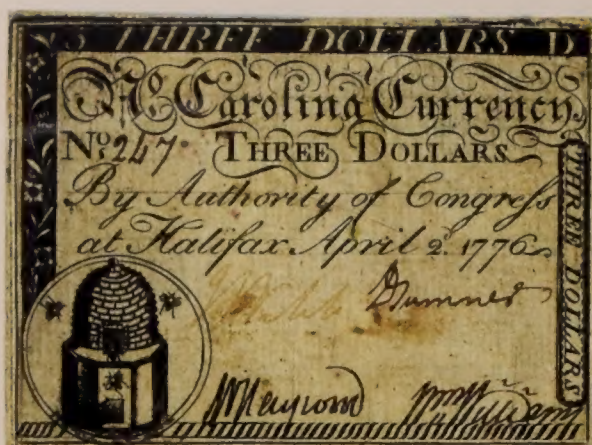 THREE DOLLARS D
No. Carolina Currency.
No. 247. THREE DOLLARS
By Authority of Congress
at Halifax April 2d. 1776
THREE DOLLARS
D Sumner
W Haywood
Williams